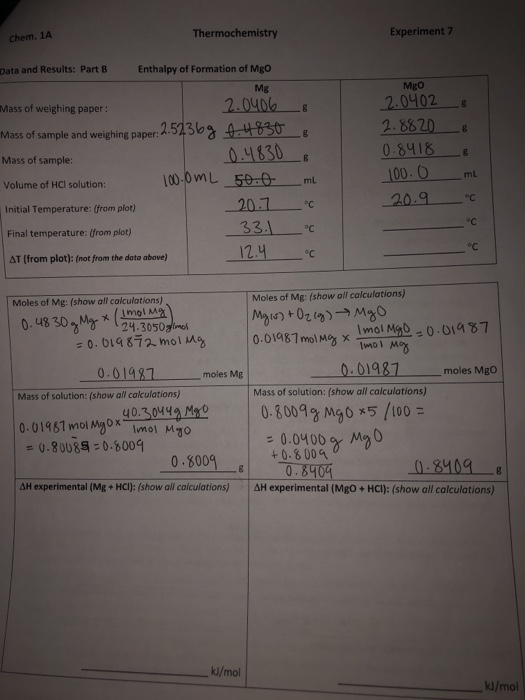 Chem. 1A Thermochemistry Experiment 7
Data and Results: Part B Enthalpy of Formation of MgO
Mg MgO
Mass of weighing paper: 2.0406 g 2.0402 g
Mass of sample and weighing paper: 2.5236g 0.4830 g 2.8820 g
Mass of sample: 0.4830 g 0.8418 g
Volume of HCl solution: 100.0mL 50.0 mL 100.0 mL
Initial Temperature: (from plot) 20.7 °C 20.9 °C
Final temperature: (from plot) 33.1 °C °C
ΔT (from plot): (not from the data above) 12.4 °C °C
Moles of Mg: (show all calculations)
0.4830g Mg × (1mol Mg / 24.3050g/mol)
= 0.019872 mol Mg
0.01987 moles Mg
Moles of Mg: (show all calculations)
Mg(s) + O2(g) → MgO
0.01987 mol Mg × 1mol MgO / 1mol Mg = 0.01987
0.01987 moles MgO
Mass of solution: (show all calculations)
0.01987 mol MgO × 40.3044g MgO / 1mol MgO
= 0.80085 = 0.8009
0.8009 g
Mass of solution: (show all calculations)
0.8009g MgO ×5 /100 =
= 0.0400g MgO
+ 0.8009
0.8409 0.8409 g
ΔH experimental (Mg + HCl): (show all calculations)
kJ/mol
ΔH experimental (MgO + HCl): (show all calculations)
kJ/mol